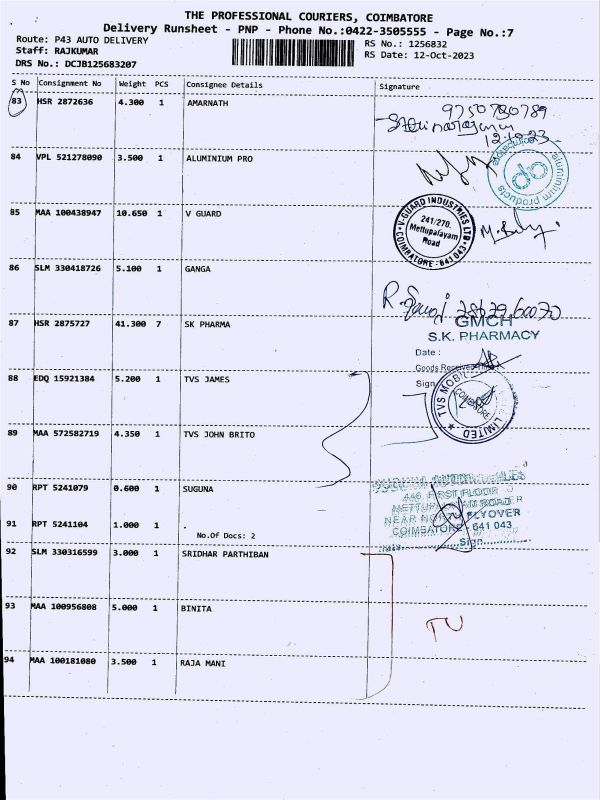 THE PROFESSIONAL COURIERS, COIMBATORE
Delivery Runsheet - PNP - Phone No.:0422-3505555 - Page No.:7
Route: P43 AUTO DELIVERY
RS No.: 1256832
Staff: RAJKUMAR
RS Date: 12-Oct-2023
DRS No.: DCJB125683207
S No Consignment No Weight PCS Consignee Details Signature
83 HSR 2872636 4.300 1 AMARNATH
12.10.23
84 VPL 521278090 3.500 1 ALUMINIUM PRO
aluminium products
85 MAA 100438947 10.650 1 V GUARD
V-GUARD INDUSTRIES LTD
241/270,
Mettupalayam
Road
COIMBATORE - 641 043
86 SLM 330418726 5.100 1 GANGA
87 HSR 2875727 41.300 7 SK PHARMA
GMCH
S.K. PHARMACY
Date :
Goods Received
Sign
88 EDQ 15921384 5.200 1 TVS JAMES
TVS MOBI LIMITED
COIMBATORE
89 MAA 572582719 4.350 1 TVS JOHN BRITO
90 RPT 5241079 0.600 1 SUGUNA
446, FIRST FLOOR
METTUPALAYAM ROAD
NEAR NORTH FLYOVER
COIMBATORE - 641 043
Sign
91 RPT 5241104 1.000 1 .
No.Of Docs: 2
92 SLM 330316599 3.000 1 SRIDHAR PARTHIBAN
93 MAA 100956808 5.000 1 BINITA
94 MAA 100181080 3.500 1 RAJA MANI